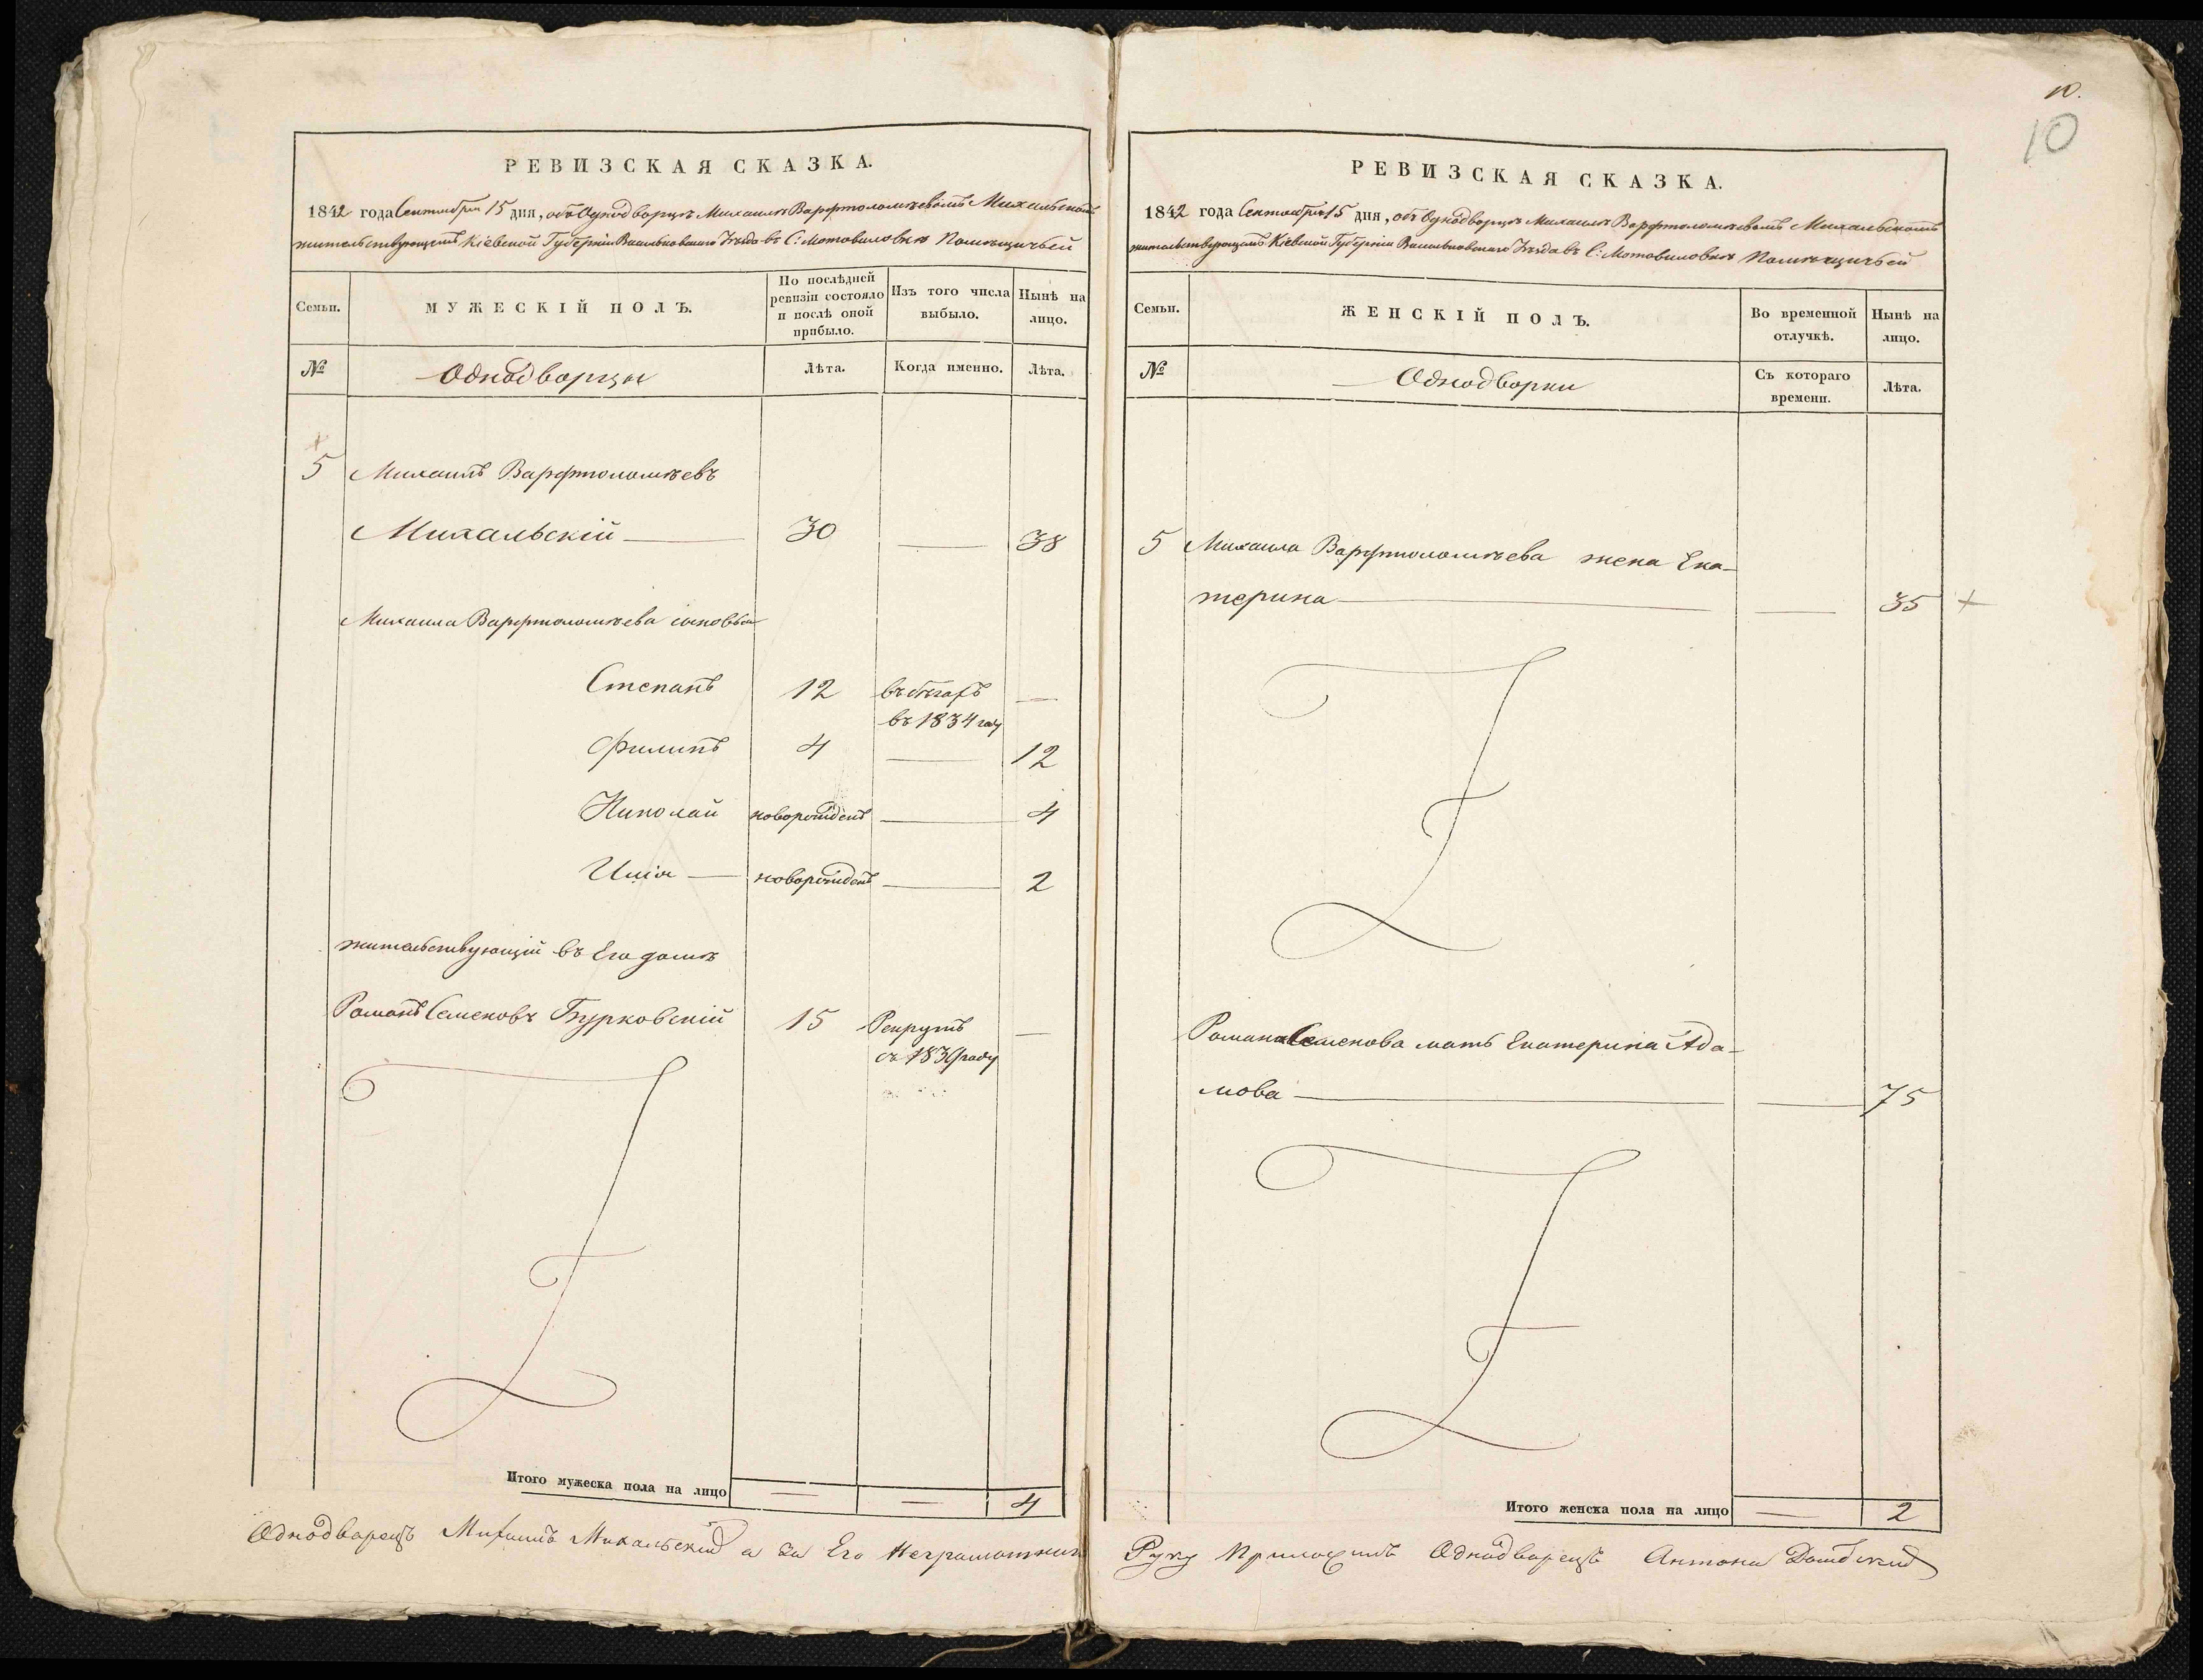 10.
10
РЕВИЗСКАЯ СКАЗКА.
1842 года Сентября 15 дня, объ Однодворцѣ Михаилѣ Варфтоломѣевомъ Михальскомъ
жительствующемъ Кіевской Губерніи Васильковскаго Уѣзда въ С: Мотовиловкѣ Помѣщичьей
Семьи.
МУЖЕСКІЙ ПОЛЪ.
По послѣдней
ревизіи состояло
и послѣ оной
прибыло.
Изъ того числа
выбыло.
Нынѣ на
лицо.
№
Однодворцы
Лѣта.
Когда именно.
Лѣта.
5 Михаилъ Варфтоломѣевъ
Михальскій — 30 — 38
Михаила Варфтоломѣева сыновья
Степанъ 12 въ бѣгахъ —
въ 1834 году
Филипъ 4 — 12
Николай новорожденъ — 4
Илія — новорожденъ — 2
жительствующій въ Его домѣ
Романъ Семеновъ Бурковскій 15 Рекрутъ —
съ 1839 году
Итого мужеска пола на лицо — — 4
Однодворецъ Михаилъ Михальский а за Его Неграмотного
РЕВИЗСКАЯ СКАЗКА.
1842 года Сентября 15 дня, объ Однодворцѣ Михаилѣ Варфтоломѣевомъ Михальскомъ
жительствующемъ Кіевской Губерніи Васильковскаго Уѣзда въ С: Мотовиловкѣ Помѣщичьей
Семьи.
ЖЕНСКІЙ ПОЛЪ.
Во временной
отлучкѣ.
Нынѣ на
лицо.
№
Однодворки
Съ котораго
времени.
Лѣта.
5 Михаила Варфтоломѣева жена Ека-
терина — — 35 +
Романа Семенова мать Екатерина Ада-
мова — — 75
Итого женска пола на лицо — 2
Руку Приложилъ Однодворецъ Антони